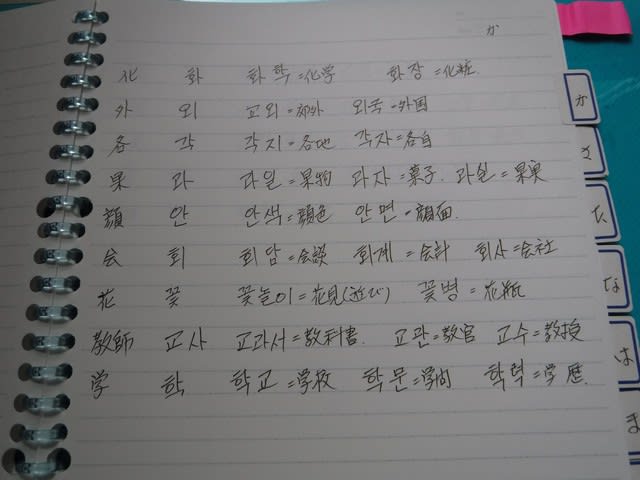 か
化 화 화학=化学 화장=化粧
外 외 교외=郊外 외국=外国
各 각 각지=各地 각자=各自
果 과 과일=果物 과자=菓子. 과실=果実
顔 안 안색=顔色 안면=顔面.
会 회 회담=会談 회계=会計 회사=会社
花 꽃 꽃놀이=花見(遊び) 꽃병=花瓶
教師 교사 교과서=教科書. 교관=教官 교수=教授
学 학 학교=学校 학문=学問 학력=学歴.
か
さ
た
な
は
ま